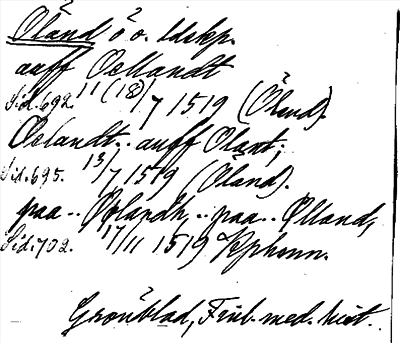 Öland ö o. ldskp.
auff Oellandt
Sid. 692. 11 (12)/7 1519 (Öland).
Oelandt.. auff Olant;
Sid. 695. 13/7 1519 (Öland).
paa.. Øylandh,.. paa.. Ølland,
Sid. 702. 17/11 1519 Kphmn.
Grönblad, Finl. med. hist.